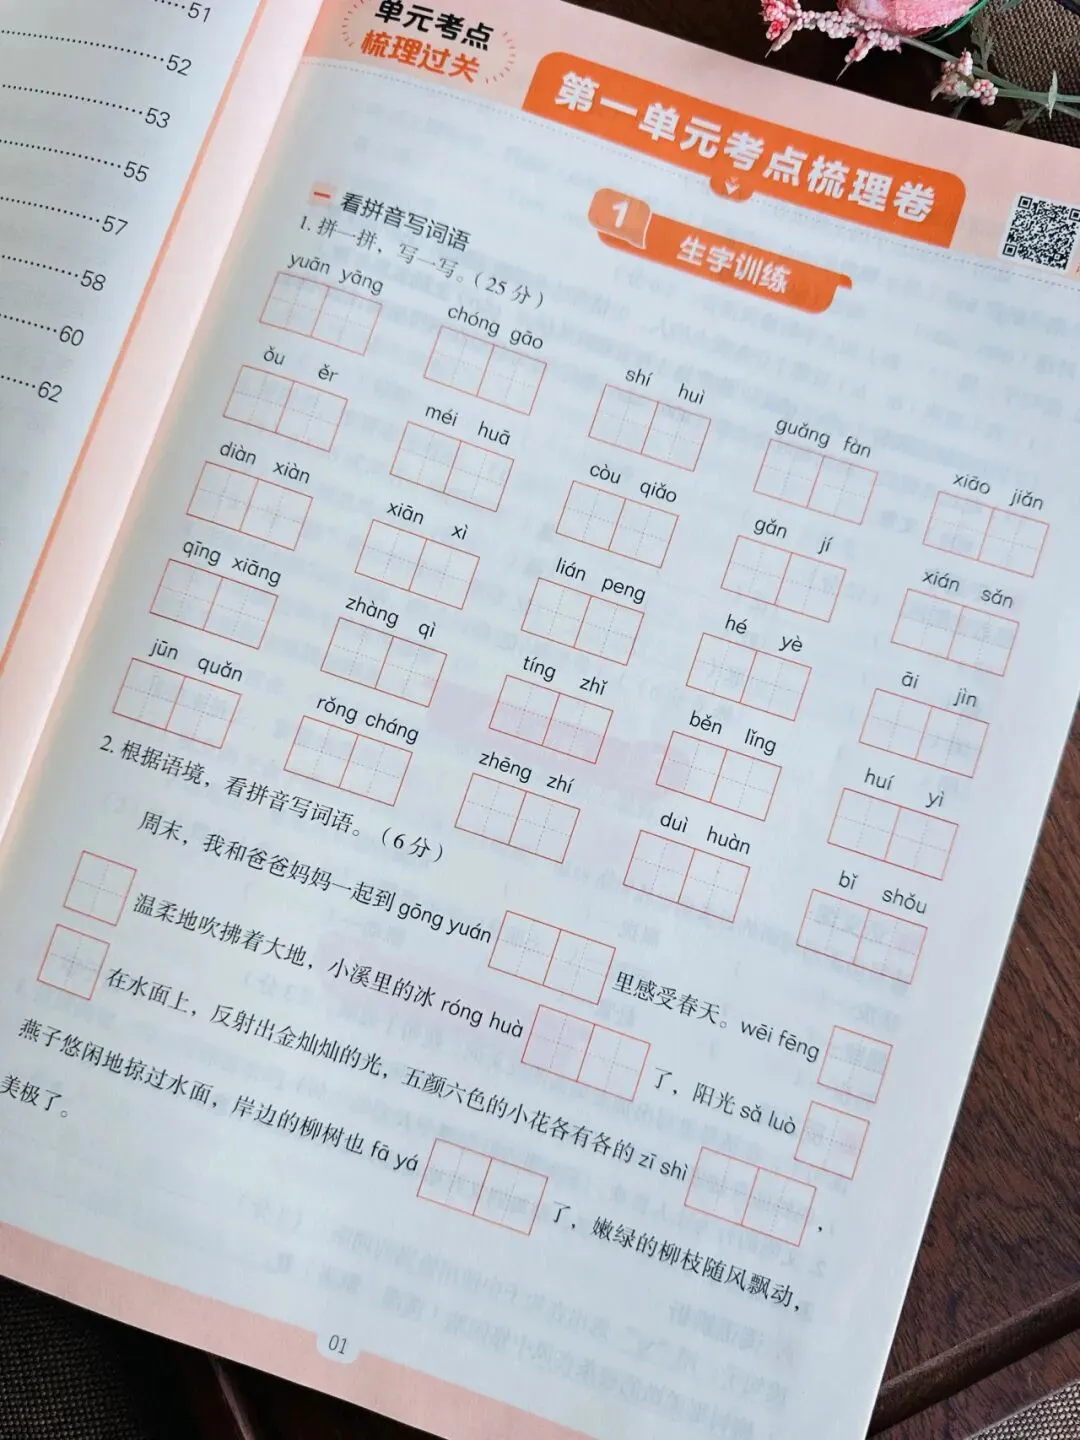 51
52
53
55
57
58
60
62
单元考点
梳理过关
第一单元考点梳理卷
1 生字训练
一 看拼音写词语
1. 拼一拼，写一写。（25 分）
yuān yāng chóng gāo shí huì guǎng fàn xiāo jiǎn
ǒu ěr méi huā còu qiǎo gǎn jí xián sǎn
diàn xiàn xiān xì lián peng hé yè āi jìn
qīng xiāng zhàng qì tíng zhǐ běn lǐng huí yì
jūn quǎn rǒng cháng zhēng zhí duì huàn bǐ shǒu
2. 根据语境，看拼音写词语。（6 分）
周末，我和爸爸妈妈一起到 gōng yuán 里感受春天。wēi fēng
温柔地吹拂着大地，小溪里的冰 róng huà 了，阳光 sǎ luò
在水面上，反射出金灿灿的光，五颜六色的小花各有各的 zī shì ，
燕子悠闲地掠过水面，岸边的柳树也 fā yá 了，嫩绿的柳枝随风飘动，
美极了。
01